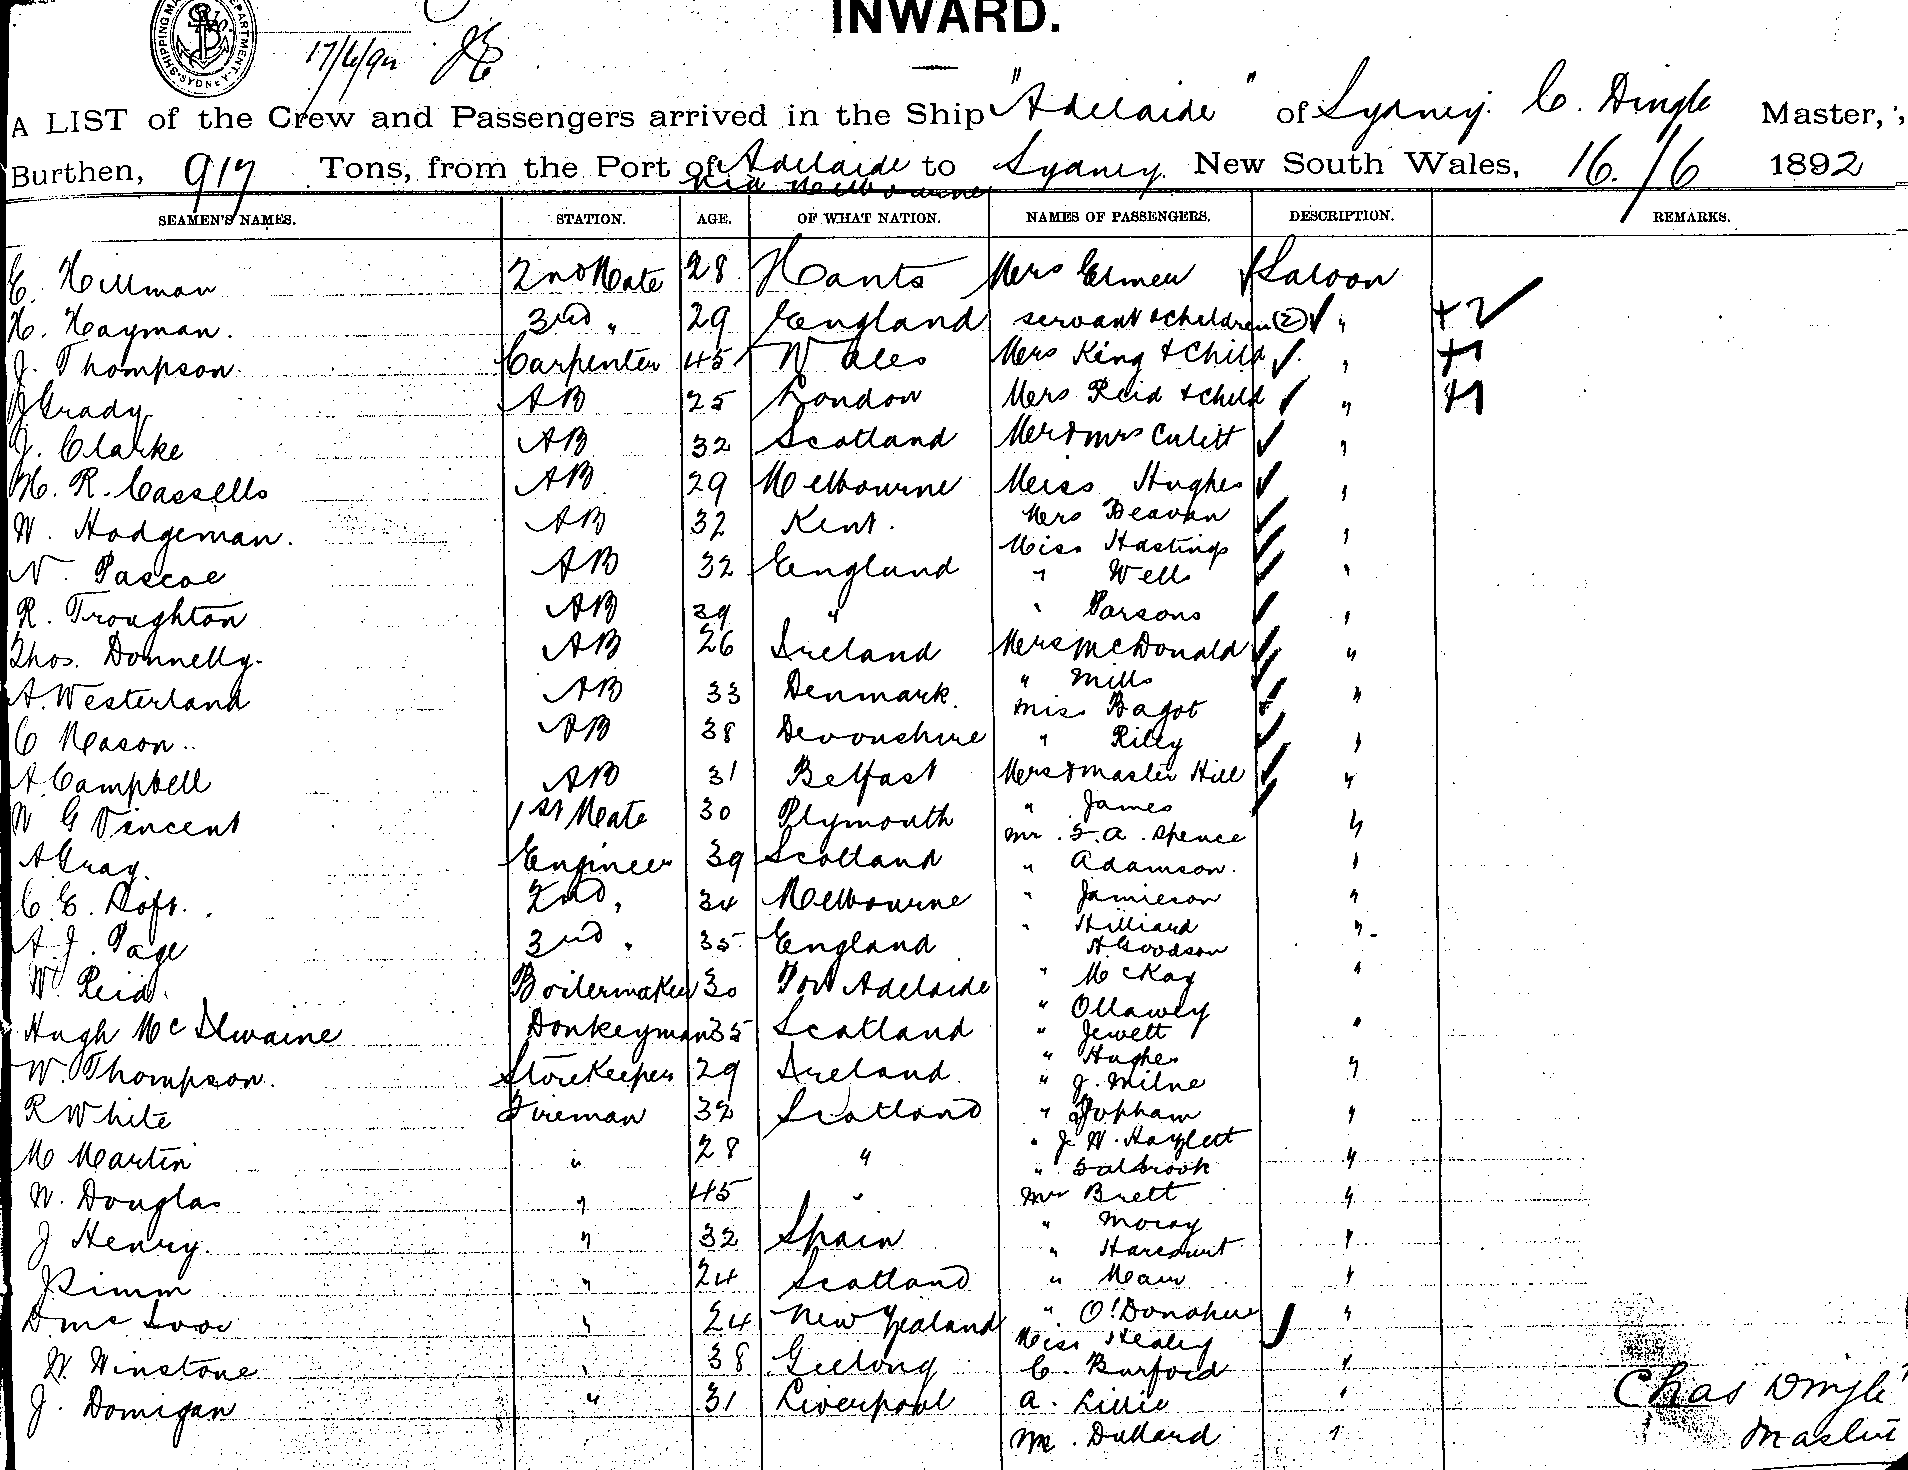 INWARD.
SHIPPING MA DEPARTMENT SYDNEY
17/6/92
A LIST of the Crew and Passengers arrived in the Ship "Adelaide" of Sydney. C. Dingle Master,
Burthen, 917 Tons, from the Port of Adelaide to Sydney. New South Wales, 16/6 1892
via Melbourne
SEAMEN'S NAMES. STATION. AGE. OF WHAT NATION. NAMES OF PASSENGERS. DESCRIPTION. REMARKS.
E. Hillman 2nd Mate 28 Hants Mrs Elmen Saloon
H. Hayman. 3rd " 29 England servant & children (2) " +2
J. Thompson. Carpenter 45 Wales Mrs King & Child " +1
J Grady AB 25 London Mrs Reid & child " +1
J. Clarke AB 32 Scotland Mr & Mrs Culitt "
H. R. Cassells AB 29 Melbourne Miss Hughes "
W. Hodgeman. AB 32 Kent. Mrs Beavan "
Miss Hastings
N. Pascoe AB 32 England " Wells "
R. Troughton AB 39 " " Parsons "
Thos. Donnelly. AB 26 Ireland Mrs McDonald "
A. Westerland AB 33 Denmark. " Mills "
Miss Bagot
C Mason.. AB 38 Devonshire " Riley "
A. Campbell AB 31 Belfast Mrs & master Hill "
W G Vincent 1st Mate 30 Plymouth " James "
Mr. S. A. Spence
A Gray. Engineer 39 Scotland " Adamson. "
C. E. 2nd " 34 Melbourne " Jamieson "
" Hilliard
A. J. Page 3rd " 35 England A. Goodson "
W. Reid. Boilermaker 30 Port Adelaide " McKay "
" Ollawey
Hugh McIlwaine Donkeyman 35 Scotland " Jewett "
" Hughes
W. Thompson. Storekeeper 29 Ireland " J. Milne "
R White Fireman 32 Scotland " Topham "
" J. W. Hayzlett
M Martin " 28 " " Salbrook "
W. Douglas " 45 " Mr Brett "
" Moray
J Henry. " 32 Spain " Harcourt "
J Pimm " 24 Scotland " Main "
D Mc " 24 New Zealand " O'Donohue "
Miss Healey
W. Winstone " 38 Geelong C. Burford "
J. Domigan " 31 Liverpool A. Lillie "
M. Dullard "
Chas Dingle
Master